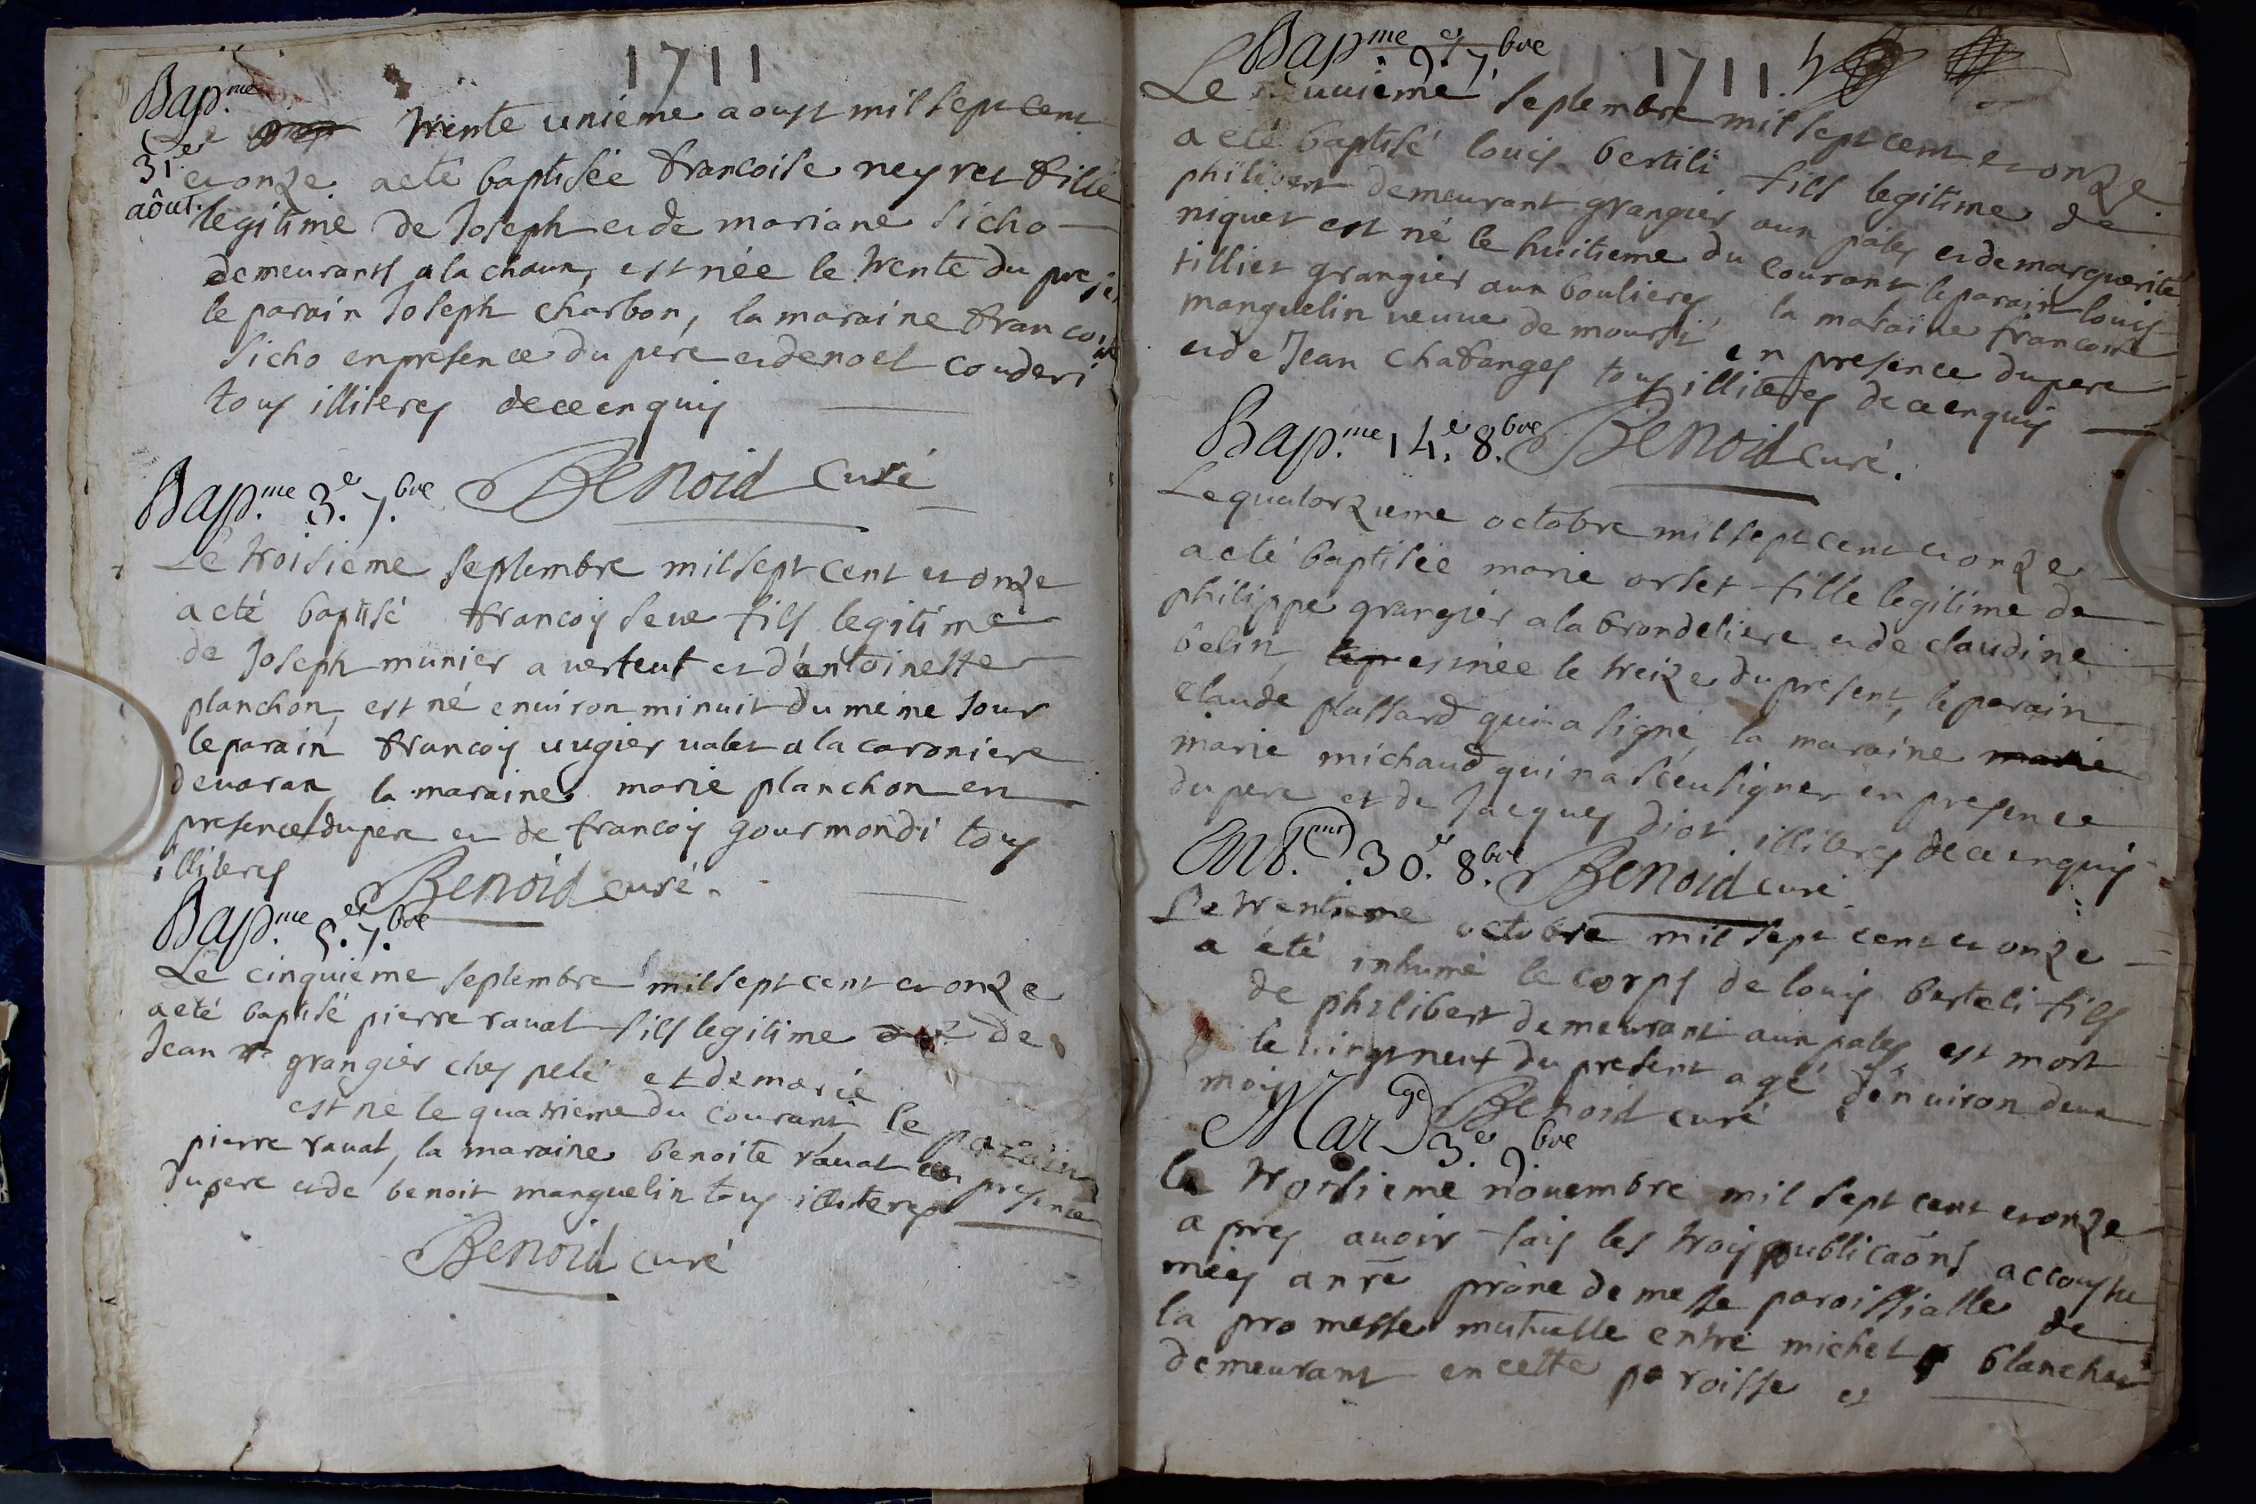 1711
Bap.me
31.e
aôut.
Le trente unieme aoust mil sept cent
et onze a eté baptisée francoise neyret fille
legitime de Joseph et de mariane sicho
demeurants a la chaux, est née le trente du
le parain Joseph charbon, la maraine francoise
sicho en presence du pere et de noel couderi
tous illiteres de ce enquis
Benoid curé
Bap.me 3.e 7.bre
Le troisieme septembre mil sept cent et onze
a eté baptisé francois seue fils legitime
de Joseph munier a verteut et d'antoinette
planchon, est né enuiron minuit du meme jour
le parain francois uugier ualet a la caroniere
de uaran, la maraine marie planchon en
presence du pere et de francois gourmondi tous
illiteres
Benoid curé.
Bap.me 5.e 7.bre
Le cinquieme septembre mil sept cent et onze
a eté baptisé pierre raual fils legitime de
Jean grangier ches pelé et de marie
est né le quatrieme du courant le parain
pierre raual, la maraine benoite raual en presence
du pere et de benoit manguelin tous illiteres
Benoid curé
1711. 4
Bap.me 9.e 7.bre
Le neuuieme septembre mil sept cent et onze
a eté baptisé louis bertili fils legitime de
philibert demeurant grangier aux pales et de marguerite
niquet est né le huitieme du courant le parain louis
tillier grangier aux boulieres, la maraine francoise
manguelin ueuue de moursi en presence du pere
et de Jean chafanges tous illiteres de ce enquis
Benoid curé.
Bap.me 14.e 8.bre
Le quatorzieme octobre mil sept cent et onze
a eté baptisée marie orset fille legitime de
philippe grangier a la brondeliere et de claudine
belin, est née le treize du present, le parain
claude plassard qui a signé, la maraine marie
marie michaud qui n a sceu signer en presence
du pere et de Jacques diot illiteres de ce enquis
Benoid curé
30.e 8.bre
Le trentieme octobre mil sept cent et onze
a été inhumé le corps de louis berteli fils
de philibert demeurant aux pales, est mort
le uingt neuf du present agé d'enuiron deux
mois
Benoid curé
Mar.ge 3.e 9.bre
Le troisieme nouembre mil sept cent et onze
apres auoir fais les trois publicaons accoustu
mées a nre prône de messe paroissialle de
la promesse mutuelle entre michel blanchet
demeurant en cette paroisse et